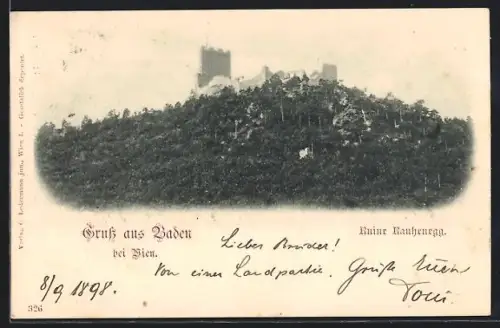 Verlag C. Ledermann jun., Wien I. - Gesetzlich deponiert.
Gruß aus Baden
bei Wien.
Ruine Rauhenegg.
Lieber Bruder!
Von einer Landpartie. Grüße Euch
8/9 1898.
Toni
326